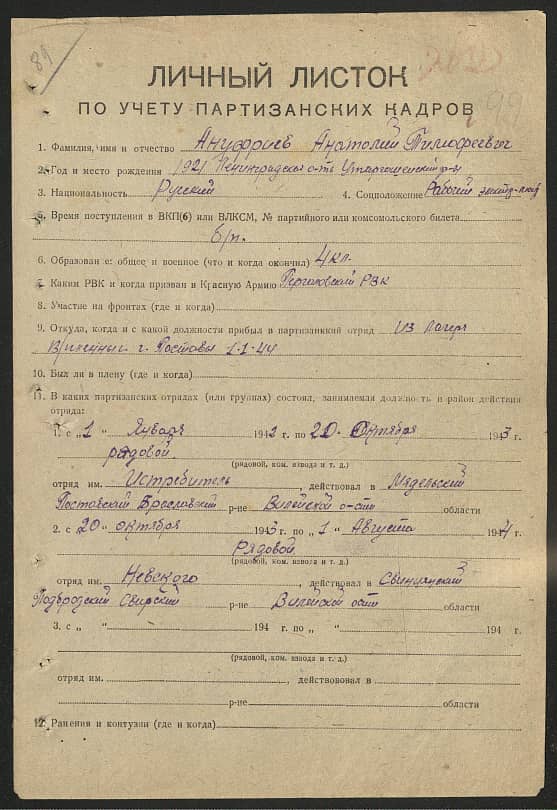 81
99
ЛИЧНЫЙ ЛИСТОК
ПО УЧЕТУ ПАРТИЗАНСКИХ КАДРОВ
1. Фамилия, имя и отчество Ануфриев Анатолий Тимофеевич
2. Год и место рождения 1921 Ленинградская о-ть Уторгошенский р-н
3. Национальность Русский 4. Соцположение Рабочий
5. Время поступления в ВКП(б) или ВЛКСМ, № партийного или комсомольского билета
б/п.
6. Образование: общее и военное (что и когда окончил) 4 кл.
7. Каким РВК и когда призван в Красную Армию РВК
8. Участие на фронтах (где и когда)
9. Откуда, когда и с какой должности прибыл в партизанский отряд из лагеря
В/пленных г. Поставы 1-1-44
10. Был ли в плену (где и когда)
11. В каких партизанских отрядах (или группах) состоял, занимаемая должность и район действия
отряда:
1. с „1 " Января 1942 г. по 20. Октября 1943 г.
рядовой.
(рядовой, ком. взвода и т. д.)
отряд им. Истребитель, действовал в Мядельский
Поставский Браславский р-не Вилейской о-сти области
2. с 20 " октября 1943 г. по „ 1 " Августа 1944 г.
Рядовой
(рядовой, ком. взвода и т. д.)
отряд им. Невского, действовал в Свенцянский
Подбродский Свирский р-не Вилейской о-сти области
3. с „ " 194 г. по „ " 194 г.
(рядовой, ком. взвода и т. д.)
отряд им., действовал в
р-не области
12. Ранения и контузии (где и когда)